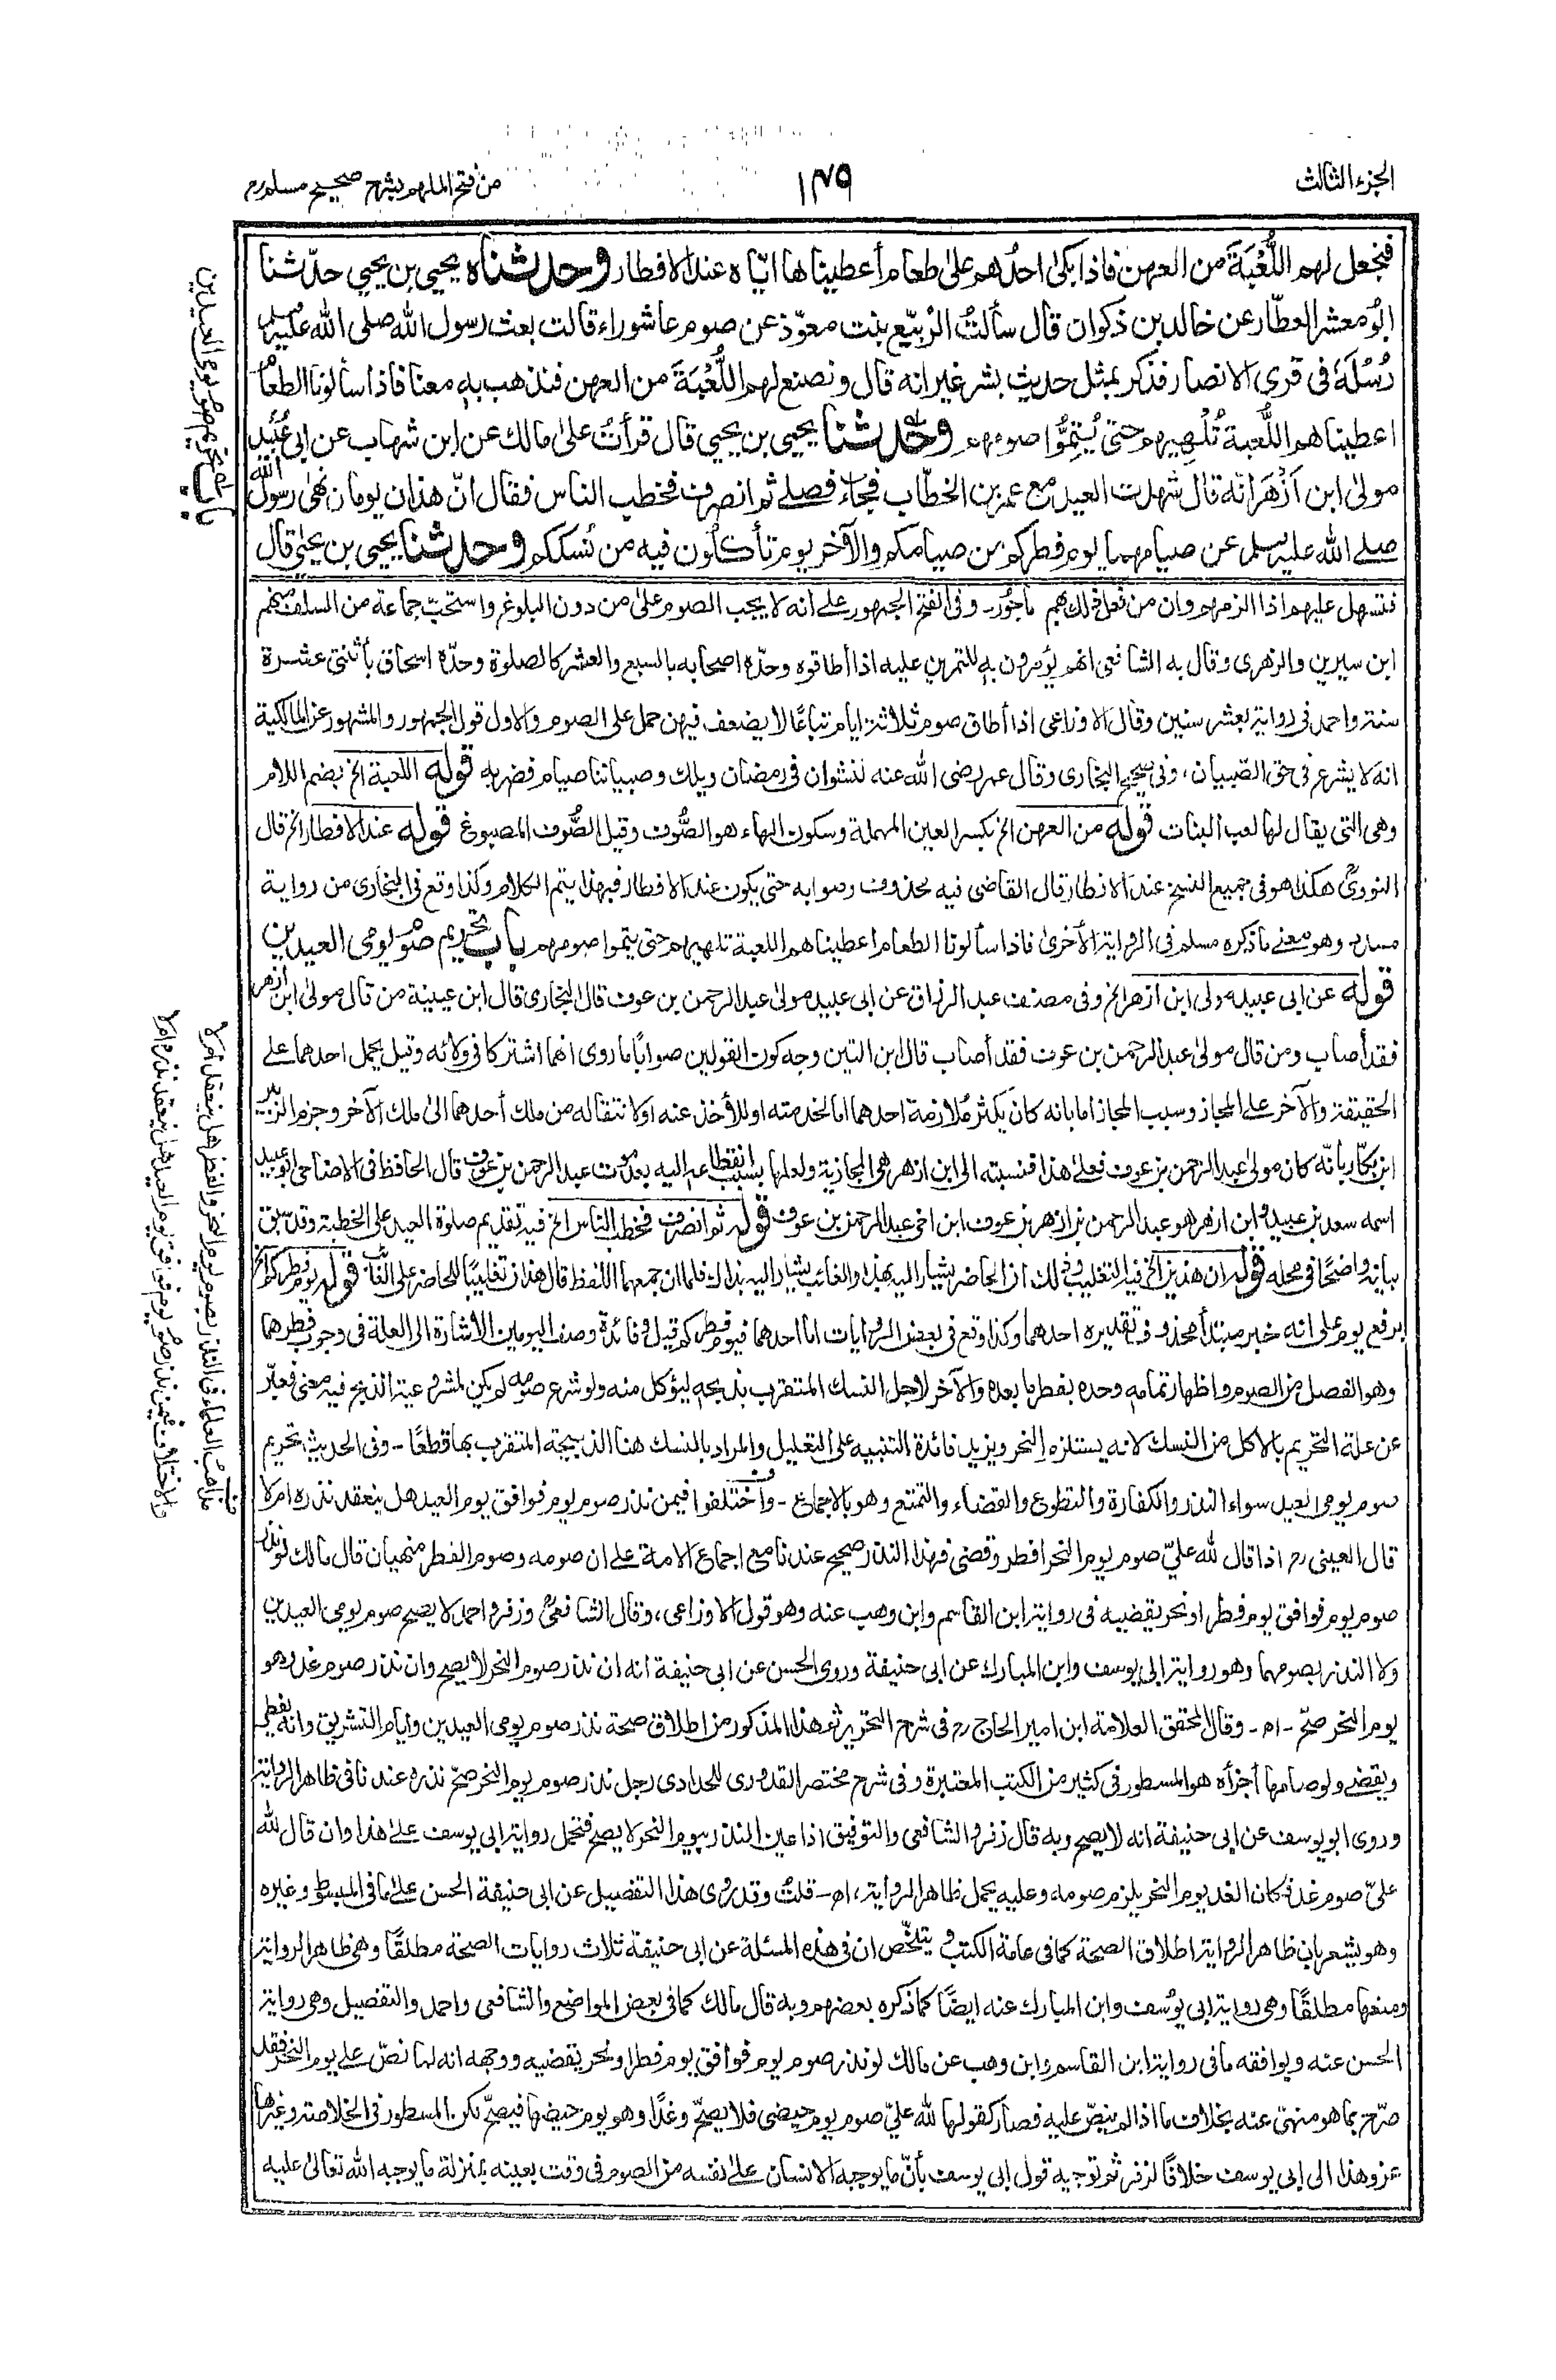 الجزء الثالث
١٤٩
من فتح الملهم بشرح صحيح مسلم
فنجعل لهم اللُّعْبَةَ من العهن فاذا بكى احدُهم على طعام أعطيناها ايّاه عند الافطار وحدثناه يحيى بن يحيى حدّثنا
ابو معشر العطّار عن خالد بن ذكوان قال سألتُ الرُّبيّع بنت معوّذ عن صوم عاشوراء قالت بعث رسول الله صلى الله عليه وسلم
رُسُلَه فى قرى الانصار فذكر بمثل حديث بشر غير انه قال ونصنع لهم اللُّعْبَةَ من العهن فنذهب به معنا فاذا سألونا الطعام
اعطيناهم اللُّعبة تُلْهِيهم حتى يُتِمُّوا صومهم وحدثنا يحيى بن يحيى قال قرأتُ على مالك عن ابن شهاب عن ابى عُبَيْد
مولى ابن اَزْهَرَ انّه قال شهدت العيد مع عمر بن الخطّاب فجاء فصلى ثم انصرف فخطب الناس فقال انّ هذان يومان نهى رسول الله
صلى الله عليه وسلم عن صيامهما يوم فطركم من صيامكم والآخر يوم تأكلون فيه من نُسككم وحدثنا يحيى بن يحيى قال
فتسهل عليهم اذا الزمهم وان من فعل ذلك بهم مأجور ـ وفى الفتح الجمهور على انه لا يجب الصوم على من دون البلوغ واستحبّ جماعة من السلف منهم
ابن سيرين والزهرى وقال به الشافعى انهم يؤمرون به للتمرين عليه اذا أطاقوه وحدّه اصحابه بالسبع والعشر كالصلوة وحدّه اسحاق بأثنتى عشرة
سنة واحمد فى رواية بعشر سنين وقال الاوزاعى اذا أطاق صوم ثلاثة ايام تباعًا لا يضعف فيهن حمل على الصوم والاول قول الجمهور والمشهور عن المالكية
انه لا يشرع فى حق الصّبيان، وفى صحيح البخارى وقال عمر رضى الله عنه لنشوان فى رمضان ويلك وصبياننا صيام فضربه قوله اللعبة الخ بضم اللام
وهى التى يقال لها لعب البنات قوله من العهن الخ بكسر العين المهملة وسكون الهاء هو الصُّوف وقيل الصُّوف المصبوغ قوله عند الافطار الخ قال
النووىؒ هكذا هو فى جميع النسخ عند الافطار قال القاضى فيه محذوف وصوابه حتى يكون عند الافطار فبهذا يتم الكلام وكذا وقع فى البخارى من رواية
مسدد وهو معنى ما ذكره مسلم فى الرواية الأخرى فاذا سألونا الطعام اعطيناهم اللعبة تلهيهم حتى يتموا صومهم باب تحريم صوم يومى العيدين
قوله عن ابى عبيد مولى ابن ازهر الخ وفى مصنف عبد الرزاق عن ابى عبيد مولى عبد الرحمن بن عوف قال البخارى قال ابن عيينة من قال مولى ابن ازهر
فقد أصاب ومن قال مولى عبد الرحمن بن عوف فقد أصاب قال ابن التين وجه كون القولين صوابًا ما روى انهما اشتركا فى ولائه وقيل يحمل احدهما على
الحقيقة والآخر على المجاز وسبب المجاز اما بانه كان يكثر ملازمة احدهما اما لخدمته او للأخذ عنه او لانتقاله من ملك أحدهما الى ملك الآخر وجزم الزبير
ابن بكّار بأنّه كان مولى عبد الرحمن بن عوف فعلى هذا فنسبته الى ابن ازهر هى المجازية ولعلها بسبب انقطاعه اليه بعد موت عبد الرحمن بن عوف قال الحافظ فى الاضاحى ابو عبيد
اسمه سعد بن عبيد وابن ازهر هو عبد الرحمن بن ازهر بن عوف ابن اخى عبد الرحمن بن عوف قوله ثم انصرف فخطب الناس الخ فيه تقديم صلوة العيد على الخطبة وقد سبق
بيانه واضحًا فى محله قوله ان هذين الخ فيه التغليب وذلك ان الحاضر يشار اليه بهذا والغائب يشار اليه بذاك فلما ان جمعهما اللفظ قال هذان تغليبًا للحاضر على الغائب قوله يوم فطركم الخ
برفع يوم على انه خبر مبتدأ محذوف تقديره احدهما وكذا وقع فى بعض الروايات اما احدهما فيوم فطركم قيل وفائدة وصف اليومين الاشارة الى العلة فى وجوب فطرهما
وهو الفصل من الصوم واظهار تمامه وحده بفطر ما بعده والآخر لاجل النسك المتقرب بذبحه ليؤكل منه ولو شرع صومه لم يكن لمشروعية الذبح فيه معنى فعبّر
عن علة التحريم بالاكل من النسك لانه يستلزم النحر ويزيد فائدة التنبيه على التعليل والمراد بالنسك هنا الذبيحة المتقرب بها قطعًا ـ وفى الحديث تحريم
صوم يومى العيد سواء النذر والكفارة والتطوع والقضاء والتمتع وهو بالاجماع ـ واختلفوا فيمن نذر صوم يوم فوافق يوم العيد هل ينعقد نذره ام لا
قال العينى رح اذا قال لله علىّ صوم يوم النحر افطر وقضى فهذا النذر صحيح عندنا مع اجماع الامة على ان صومه وصوم الفطر منهيان قال مالك لو نذر
صوم يوم فوافق يوم فطر او نحر يقضيه فى رواية ابن القاسم وابن وهب عنه وهو قول الاوزاعى، وقال الشافعىؒ وزفر واحمد لا يصح صوم يومى العيدين
ولا النذر بصومهما وهو رواية ابى يوسف وابن المبارك عن ابى حنيفة وروى الحسن عن ابى حنيفة انه ان نذر صوم النحر لا يصح وان نذر صوم غد وهو
يوم النحر صحّ ـ اھ ـ وقال المحقق العلامة ابن امير الحاج رح فى شرح التحرير ثم هذا المذكور من اطلاق صحة نذر صوم يومى العيدين وايام التشريق وانه يفطر
ويقضى ولو صامها أجزأه هو المسطور فى كثير من الكتب المعتبرة وفى شرح مختصر القدورى للحدادى رجل نذر صوم يوم النحر صحّ نذره عندنا فى ظاهر الرواية
وروى ابو يوسف عن ابى حنيفة انه لا يصح وبه قال زفر والشافعى والتوفيق اذا عين النذر بيوم النحر لا يصح فتحمل رواية ابى يوسف على هذا وان قال لله
علىّ صوم غد فكان الغد يوم النحر يلزم صومه وعليه يحمل ظاهر الرواية، اھ ـ قلتُ وقد روى هذا التفصيل عن ابى حنيفة الحسن على ما فى المبسوط وغيره
وهو يشعر بان ظاهر الرواية اطلاق الصحة كما فى عامة الكتب ويتلخّص ان فى هذه المسئلة عن ابى حنيفة ثلاث روايات الصحة مطلقًا وهى ظاهر الرواية
ومنعها مطلقًا وهى رواية ابى يوسف وابن المبارك عنه ايضًا كما ذكره بعضهم وبه قال مالك كما فى بعض المواضع والشافعى واحمد والتفصيل وهى رواية
الحسن عنه ويوافقه ما فى رواية ابن القاسم وابن وهب عن مالك لو نذر صوم يوم فوافق يوم فطر او نحر يقضيه ووجهه انه لما نصّ على يوم النحر فقد
صرّح بما هو منهىّ عنه بخلاف ما اذا لم ينصّ عليه فصار كقولها لله علىّ صوم يوم حيضى فلا يصحّ وغدًا وهو يوم حيضها فيصحّ لكن المسطور فى الخلاصة وغيرها
عزو هذا الى ابى يوسف خلافًا لزفر ثم توجيه قول ابى يوسف بأنّ ما يوجبه الانسان على نفسه من الصوم فى وقت بعينه بمنزلة ما يوجبه الله تعالى عليه
باب تحريم صوم يومى العيدين
مذاهب العلماء فى النذر بصوم يوم النحر والفطر هل ينعقد ام لا
والاختلاف فيمن نذر صوم يوم فوافق يوم العيد هل ينعقد نذره ام لا